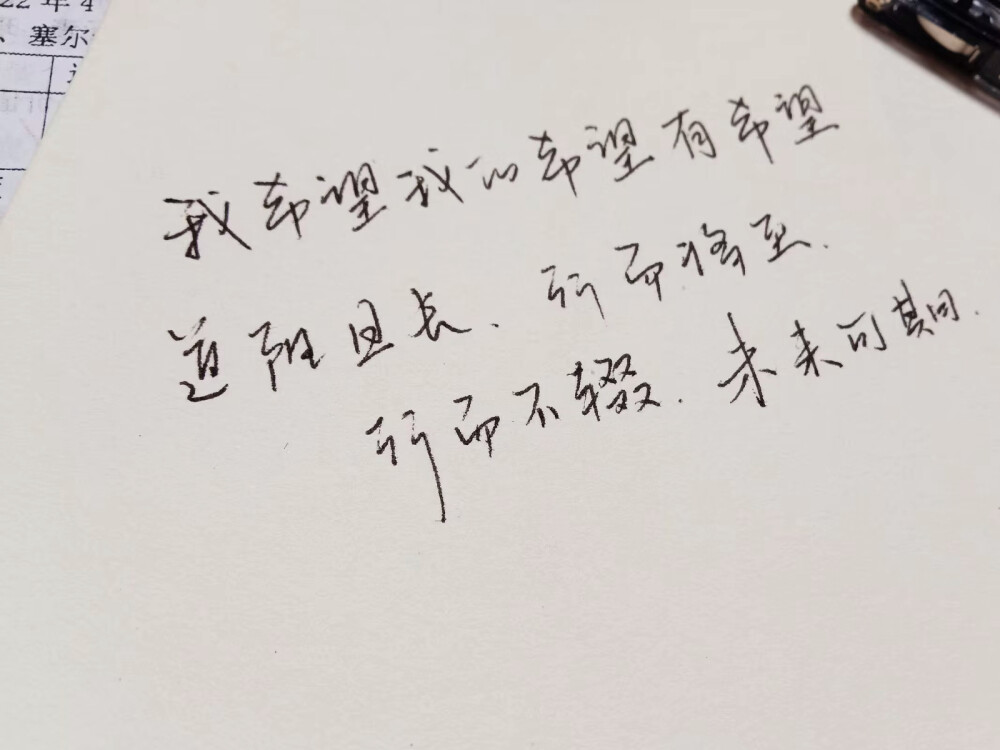 22年4
、塞尔
我希望我的希望有希望
道阻且长、行而将至.
行而不辍.未来可期.